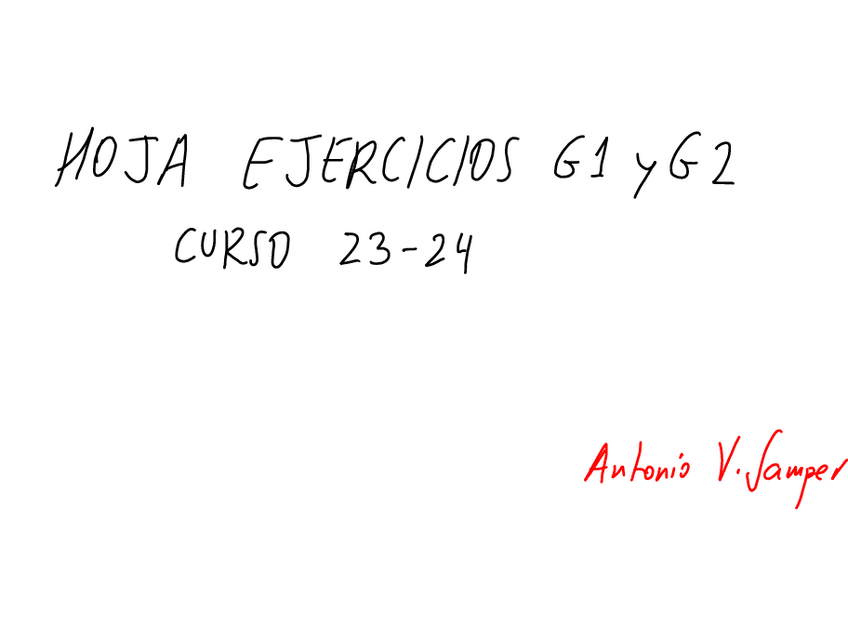 HOJA EJERCICIOS G1 y G2
CURSO 23-24
Antonio V. Samper